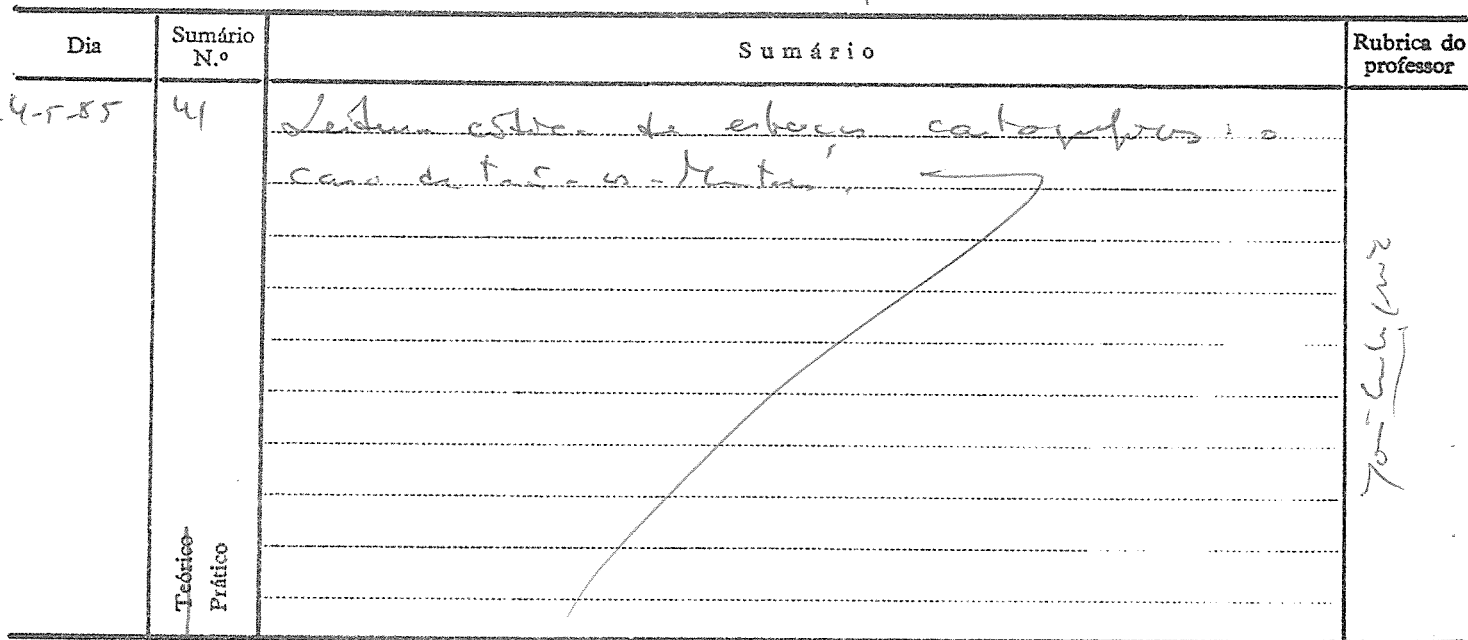 Dia
Sumário N.º
Sumário
Rubrica do professor
4-5-85
41
Leitura crítica de esboços cartográficos: o
caso de Trás-os-Montes.
Teórico
Prático